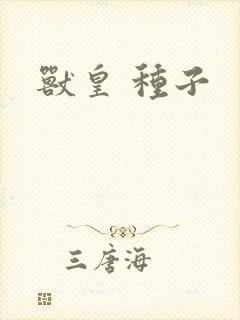 獸皇 種子
三唐海